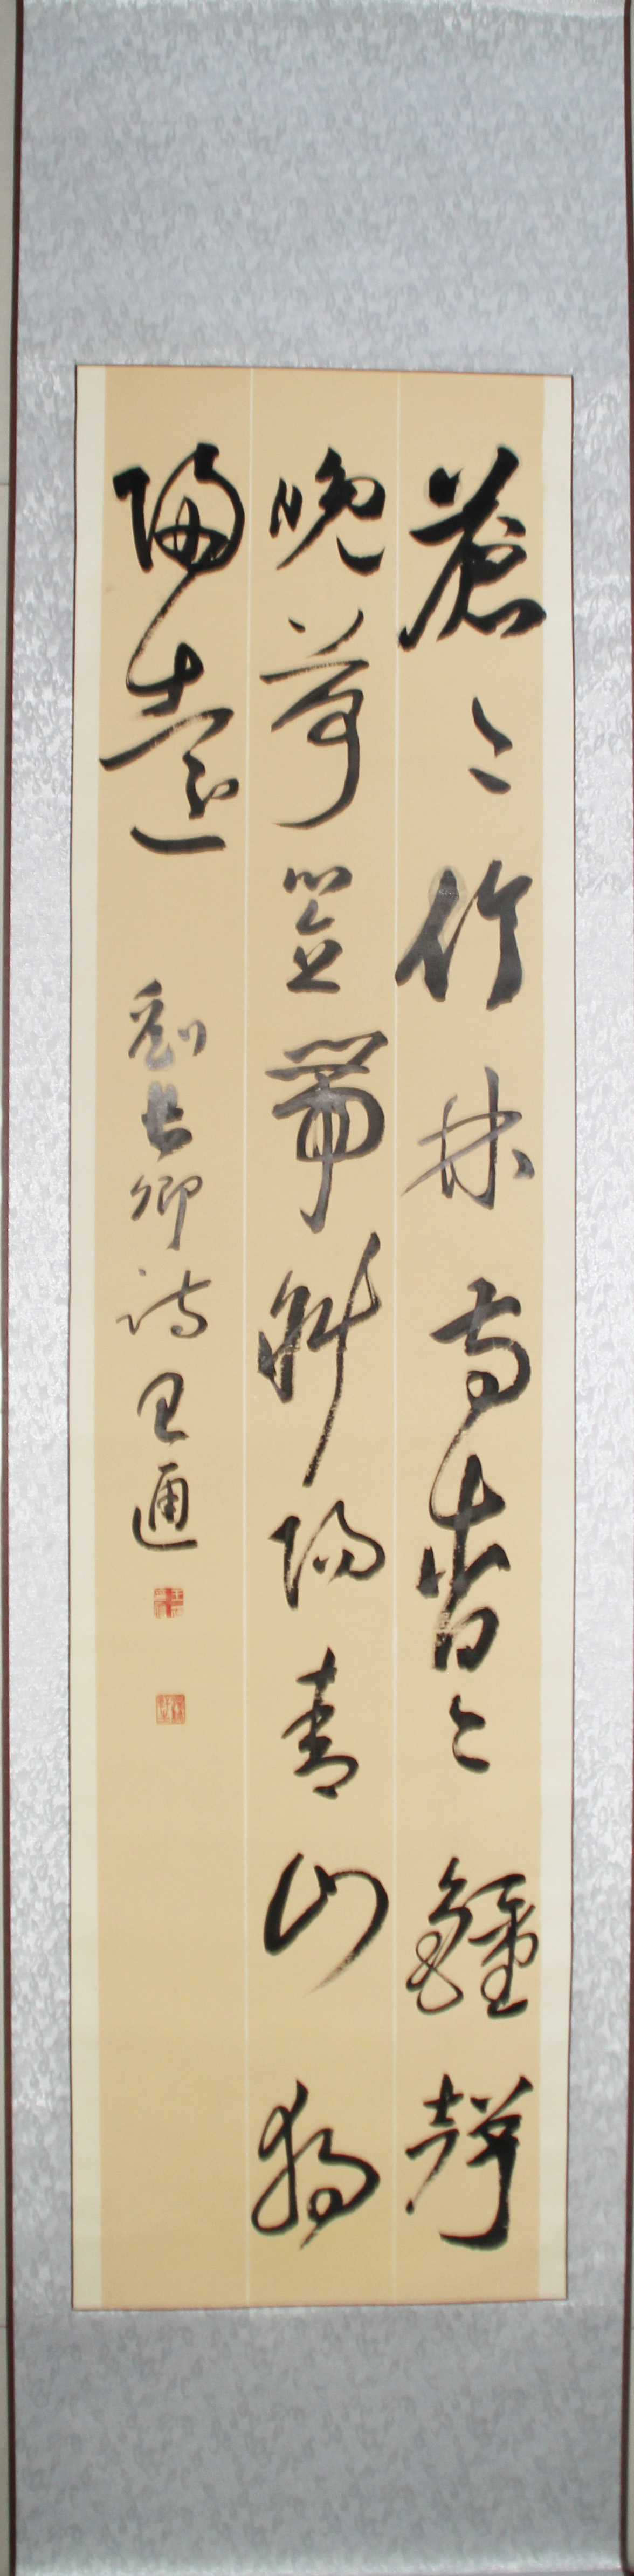 蒼〻竹林寺杳〻鐘聲
晚荷笠帶斜陽青山獨
歸遠 劉長卿詩